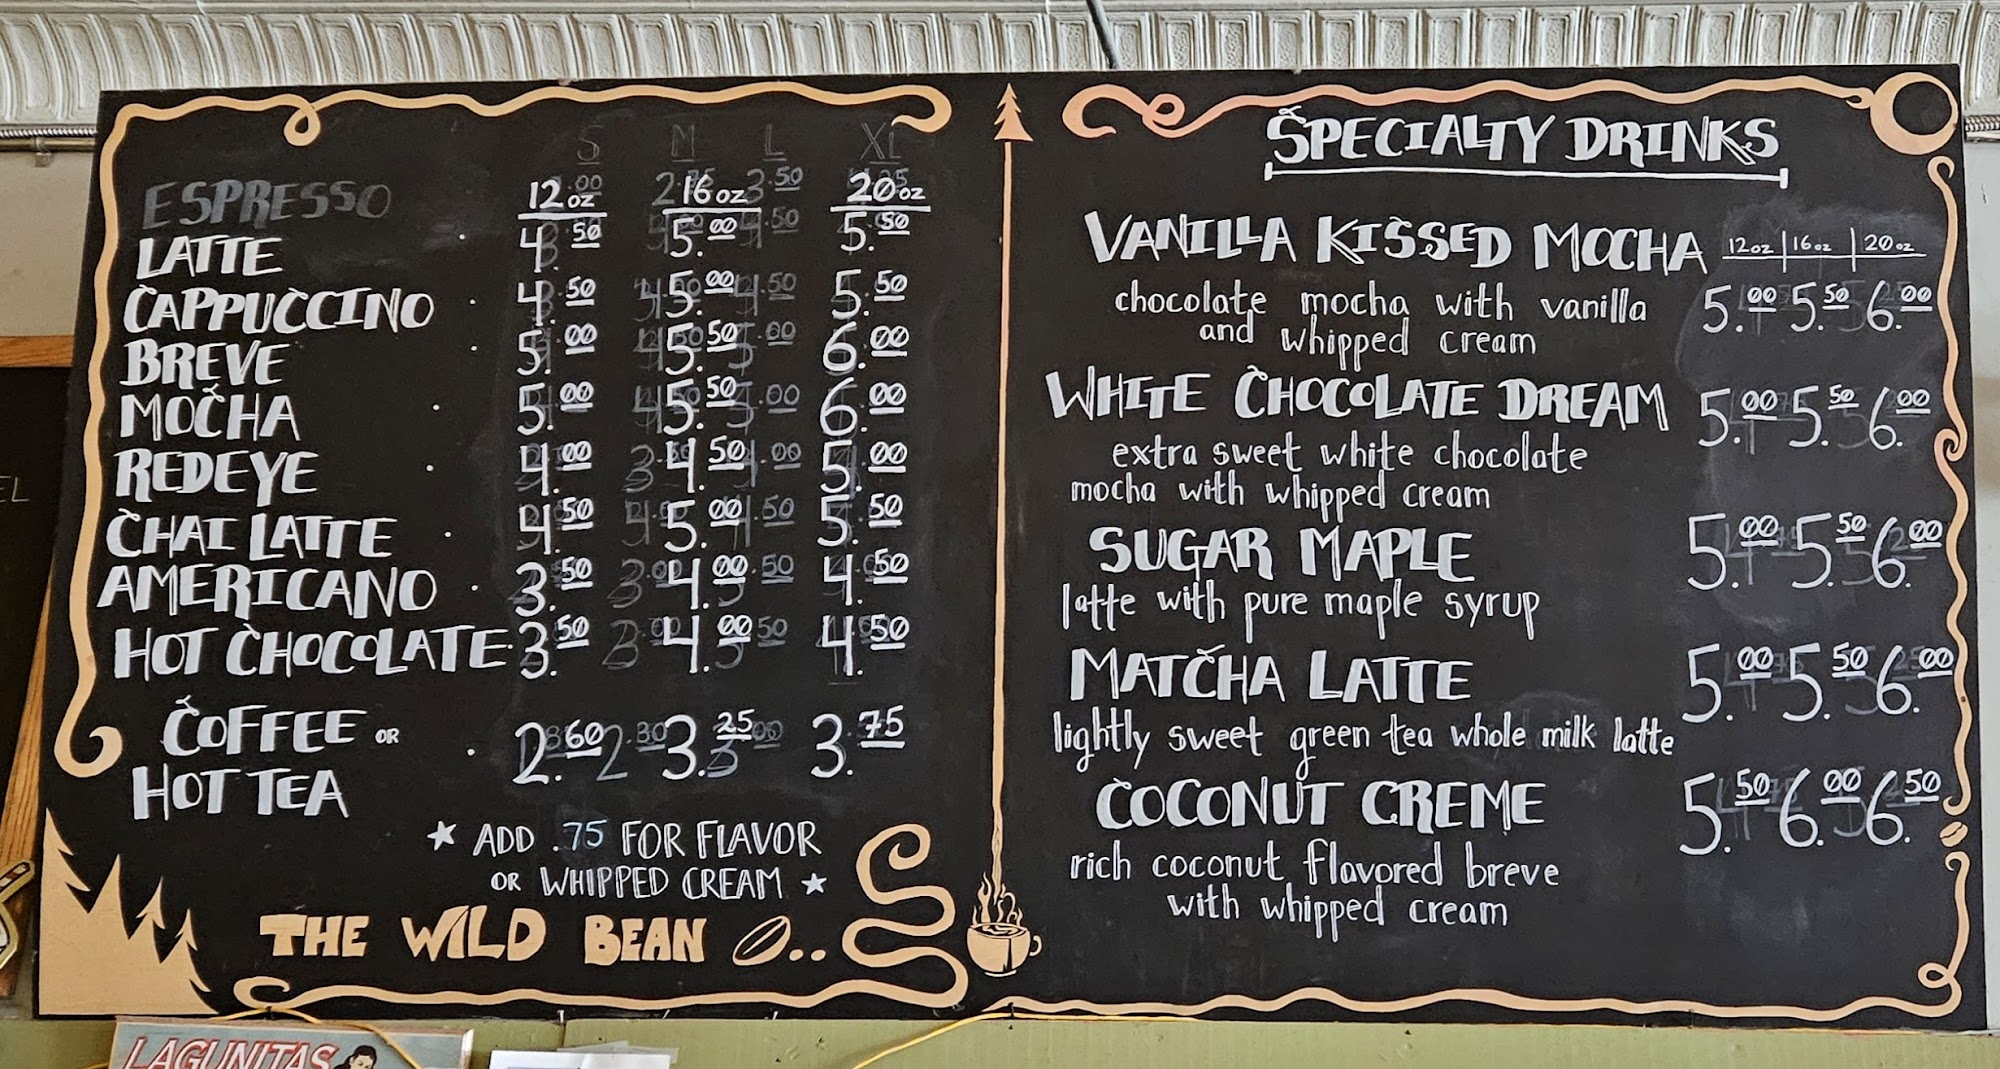 ESPRESSO
S M L XL
12 oz 16 oz 20 oz
LATTE 4.50 5.00 5.50
CAPPUCCINO 4.50 5.00 5.50
BREVE 5.00 5.50 6.00
MOCHA 5.00 5.50 6.00
REDEYE 4.00 4.50 5.00
CHAI LATTE 4.50 5.00 5.50
AMERICANO 3.50 4.00 4.50
HOT CHOCOLATE 3.50 4.00 4.50
COFFEE OR 2.60 3.25 3.75
HOT TEA
★ ADD .75 FOR FLAVOR
OR WHIPPED CREAM ★
THE WILD BEAN
SPECIALTY DRINKS
VANILLA KISSED MOCHA 12oz 16oz 20oz
chocolate mocha with vanilla 5.00 5.50 6.00
and whipped cream
WHITE CHOCOLATE DREAM 5.00 5.50 6.00
extra sweet white chocolate
mocha with whipped cream
SUGAR MAPLE 5.00 5.50 6.00
latte with pure maple syrup
MATCHA LATTE 5.00 5.50 6.00
lightly sweet green tea whole milk latte
COCONUT CREME 5.50 6.00 6.50
rich coconut flavored breve
with whipped cream
LAGUNITAS
EL